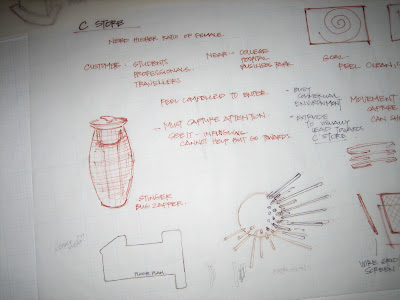 C STORE
NEED HIGHER RATIO OF FEMALE.
CUSTOMER - STUDENTS
PROFESSIONALS
TRAVELLERS
NEAR - COLLEGE
HOSPITAL
BUSINESS PARK
GOAL -
FEEL CLEAN,
FEEL COMPELLED TO ENTER.
- MUST CAPTURE ATTENTION
CANNOT HELP BUT GO TOWARDS.
- BUSY
COMMERCIAL
ENVIRONMENT
- EXTERIOR
TO VISUALLY
LEAD TOWARDS
C STORE
MOVEMENT
CAPTURE
CAN SH
STINGER
BUG ZAPPER.
FLOOR PLAN
WIRE GRID
SCREEN